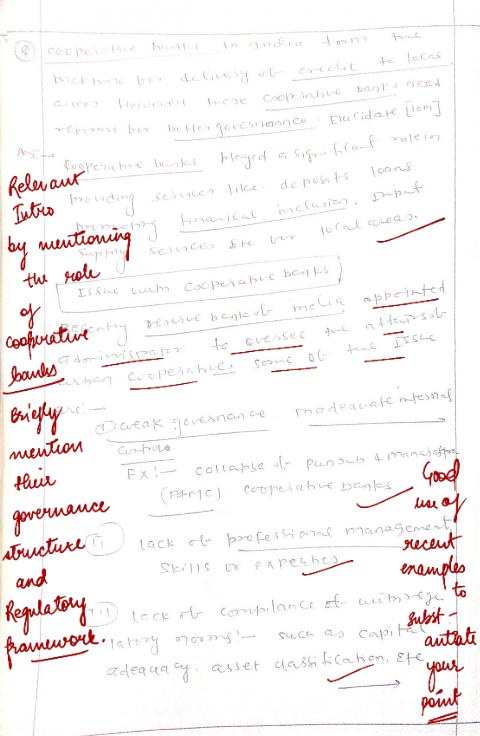 8 cooperative banks in India form the
backbone for delivery of credit to local
areas However these cooperative banks need
reforms for better governance. Elucidate. [10M]
Ans:- cooperative banks played a significant role in
providing services like deposits loans.
promoting financial inclusion. Input
supply services Etc for local areas.
Relevant
Intro
by mentioning
the role
of
cooperative
banks
Issue with cooperative banks
Recently reserve bank of India appointed
to oversee the affairs of
urban cooperative, some of the Issue
are:-
Briefly
mention
their
governance
structure
and
Regulatory
framework.
(i) weak governance inadequate internal
controls
EX:- collapse of Punjab & Maharashtra
(PMC) cooperative banks
ii) lack of professional management
skills or
iii) lack of compliance of with regu
latory norms:- such as capital
adequacy. asset classification. Etc
Good
use of
recent
examples
to
subst-
antiate
your
point